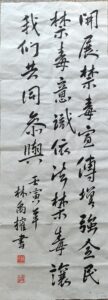 開展禁毒宣傳增強全民
禁毒意識依法禁毒讓
我们共同參與
壬寅年
林禹擢書